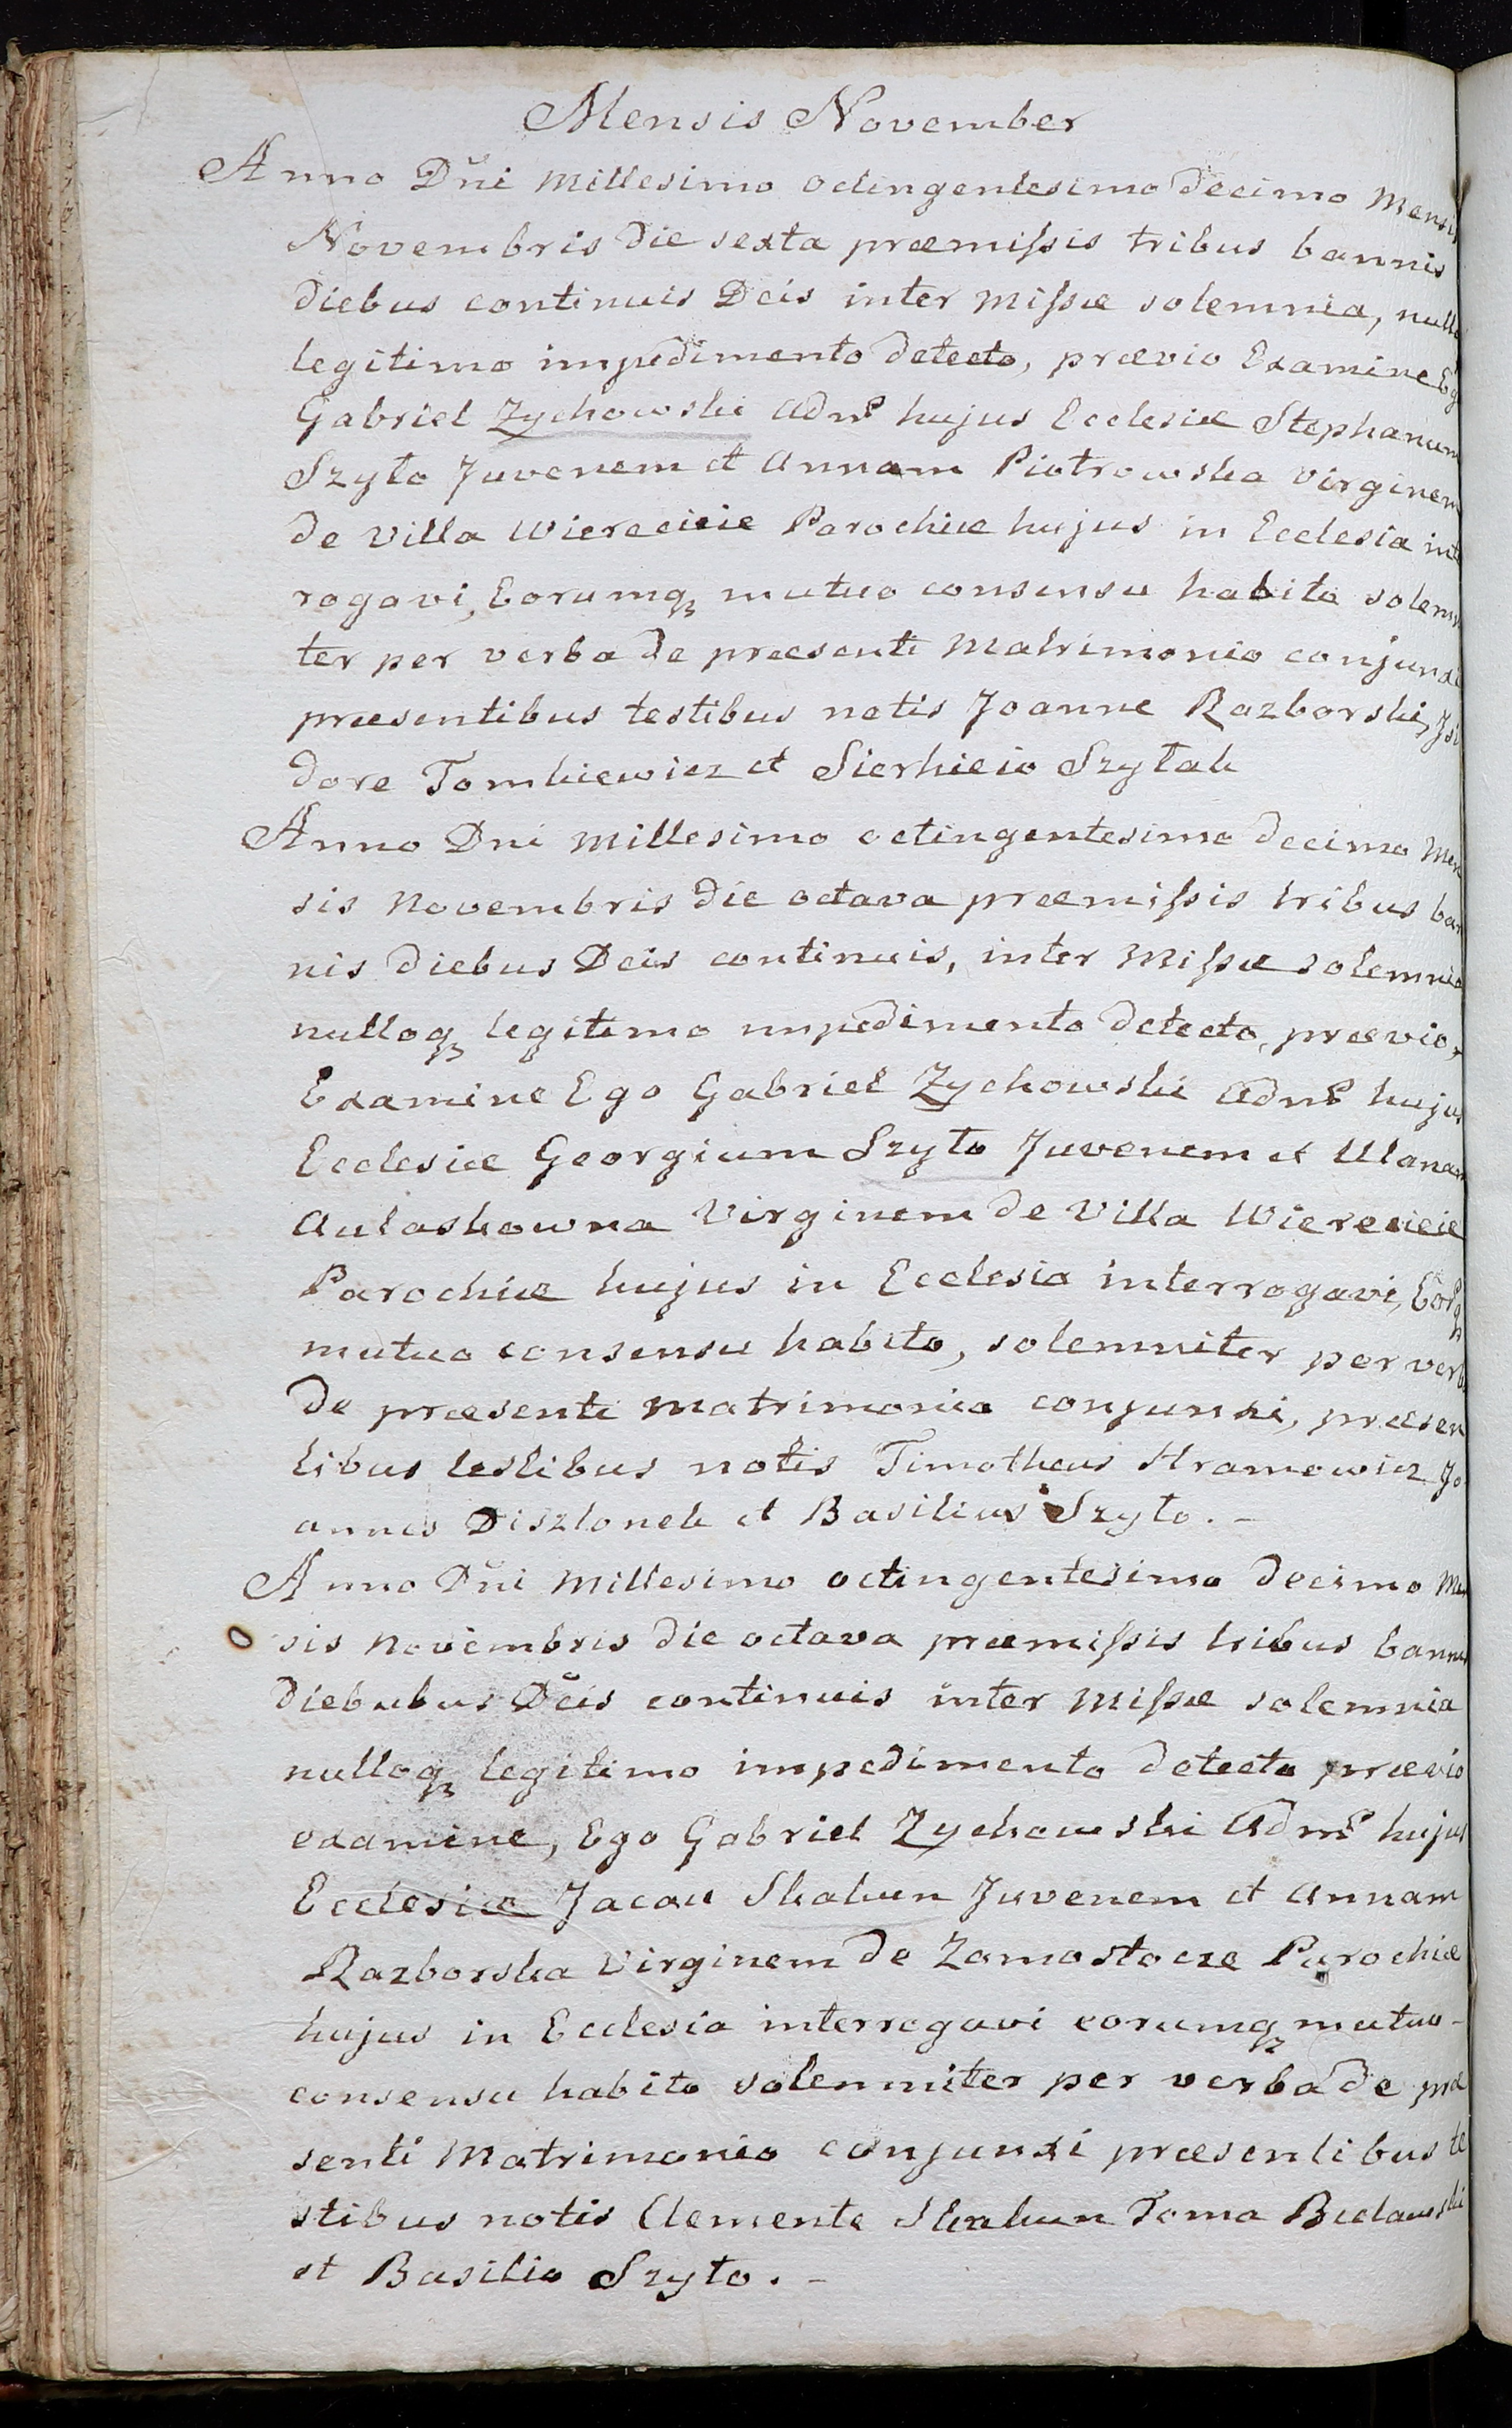 Mensis November
Anno Dñi Millesimo octingentesimo decimo Mensis
Novembris die sexta præmissis tribus bannis
diebus continuis Dcis inter Missæ solemnia, nullo
legitimo impedimento detecto, prævio Examine Ego
Gabriel Zychowski Adnr hujus Ecclesiæ Stephanum
Szyło Juvenem et Annam Piotrowska Virginem
de Villa Wierecieie Parochiæ hujus in Ecclesia inte
rogavi, Eorumq mutuo consensu habito solemni
ter per verba de præsenti Matrimonio conjunxi
præsentibus testibus notis Joanne Razborski, Jsi
dore Tomkiewicz et Sierhieio Szyłak
Anno Dni Millesimo octingentesimo decimo Men
sis Novembris die octava præmissis tribus ban
nis diebus Dcis continuis, inter Missæ solemnia
nulloq legitimo impedimento detecto, prævio
Examine Ego Gabriel Zychowski Adnr hujus
Ecclesiæ Georgium Szyło Juvenem et Ulanam
Aułaskowna Virginem de Villa Wierecieie
Parochiæ hujus in Ecclesia interrogavi, Eorq
mutuo consensu habito, solemniter per verba
de præsenti Matrimonio conjunxi, præsen
tibus testibus notis Timotheus Hramowicz Jo
annes Diszlonek et Basilius Szyło. -
Anno Dñi Millesimo octingentesimo decimo Men
sis Novembris die octava præmissis tribus bannis
diebubus Dcis continuis inter Missæ solemnia
nulloq legitimo impedimento detecto prævio
examine, Ego Gabriel Zychowski Adnr hujus
Ecclesiæ Jacou Skakun Juvenem et Annam
Razborska Virginem de Zamostocze Parochiæ
hujus in Ecclesia interrogavi eorumq mutuo -
consensu habito solemniter per verba de præ
senti Matrimonio conjunxi præsentibus te
stibus notis Clemente Skakun Toma Bielawski
et Basilio Szyło. -